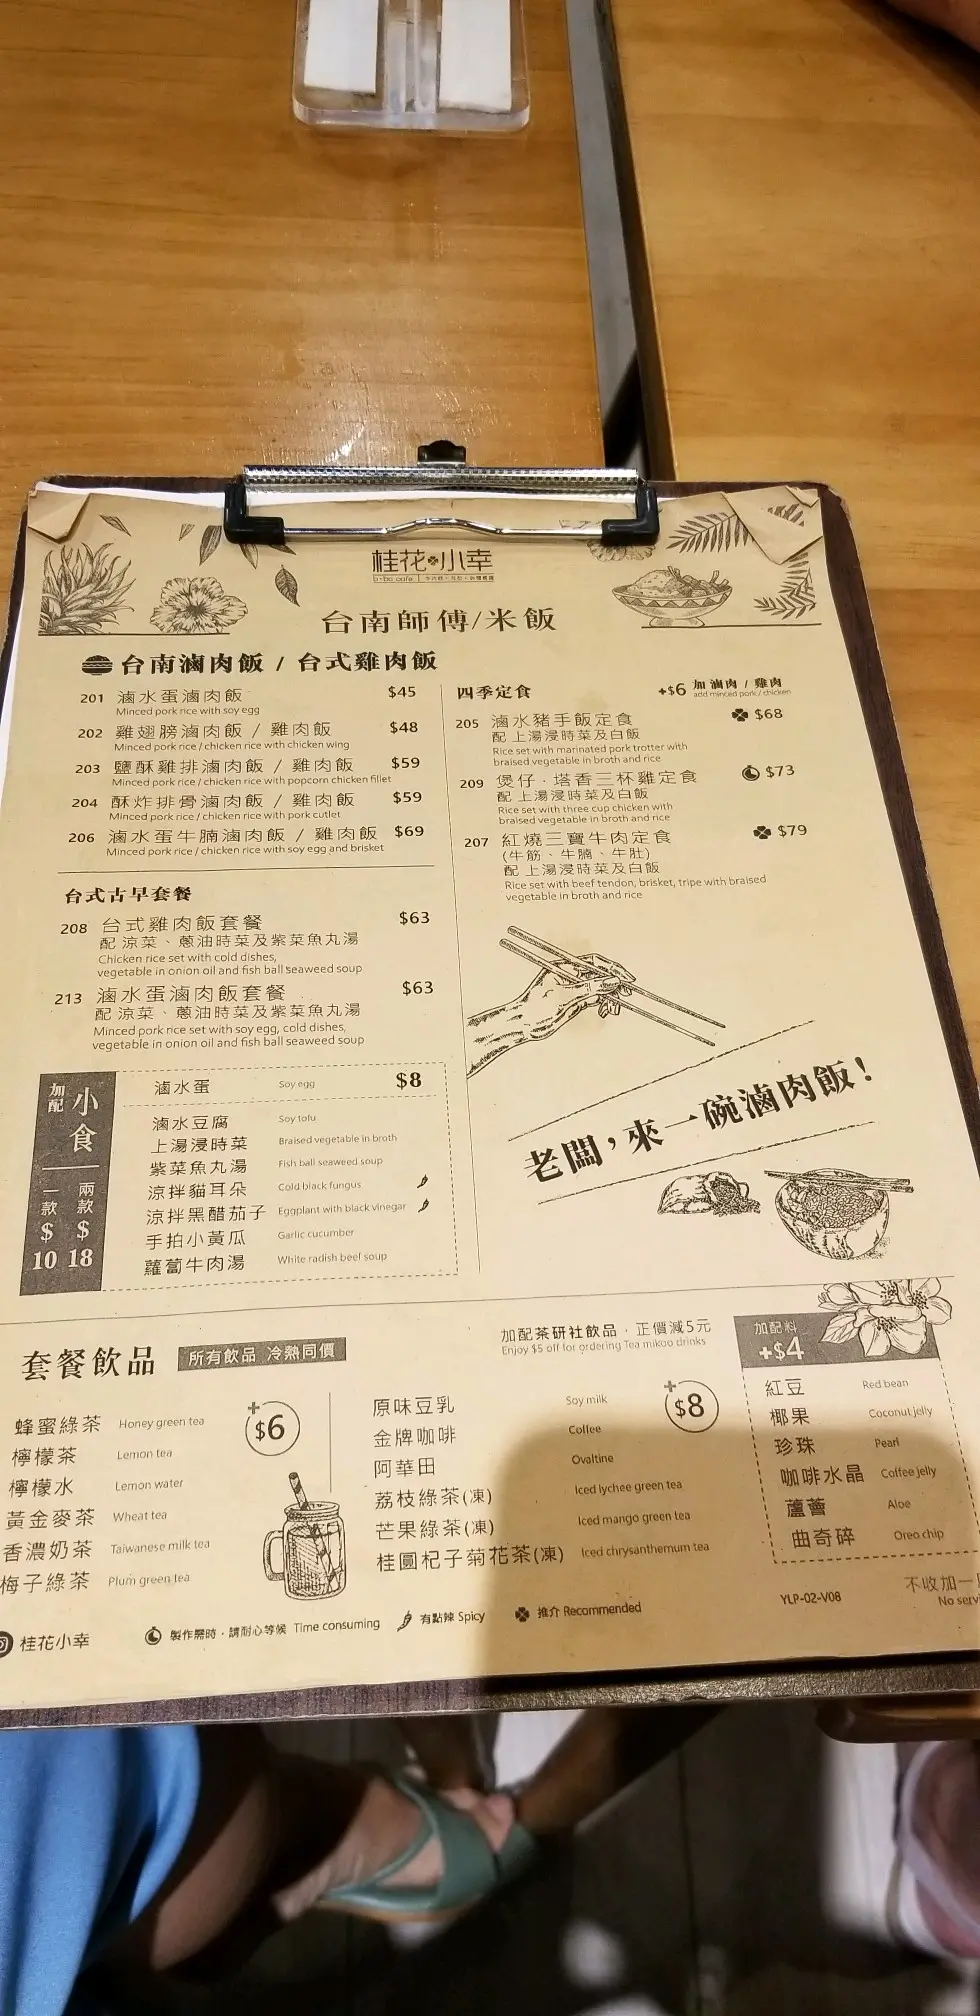 桂花小幸
b+bo cafe
台南師傅/米飯
台南滷肉飯 / 台式雞肉飯
201 滷水蛋滷肉飯 $45
Minced pork rice with soy egg
202 雞翅膀滷肉飯 / 雞肉飯 $48
Minced pork rice / chicken rice with chicken wing
203 鹽酥雞排滷肉飯 / 雞肉飯 $59
Minced pork rice / chicken rice with popcorn chicken fillet
204 酥炸排骨滷肉飯 / 雞肉飯 $59
Minced pork rice / chicken rice with pork cutlet
206 滷水蛋牛腩滷肉飯 / 雞肉飯 $69
Minced pork rice / chicken rice with soy egg and brisket
台式古早套餐
208 台式雞肉飯套餐 $63
配 涼菜、蔥油時菜及紫菜魚丸湯
Chicken rice set with cold dishes,
vegetable in onion oil and fish ball seaweed soup
213 滷水蛋滷肉飯套餐 $63
配 涼菜、蔥油時菜及紫菜魚丸湯
Minced pork rice set with soy egg, cold dishes,
vegetable in onion oil and fish ball seaweed soup
四季定食 +$6 加 滷肉 / 雞肉
add minced pork / chicken
205 滷水豬手飯定食 $68
配 上湯浸時菜及白飯
Rice set with marinated pork trotter with
braised vegetable in broth and rice
209 煲仔·塔香三杯雞定食 $73
配 上湯浸時菜及白飯
Rice set with three cup chicken with
braised vegetable in broth and rice
207 紅燒三寶牛肉定食 $79
(牛筋、牛腩、牛肚)
配 上湯浸時菜及白飯
Rice set with beef tendon, brisket, tripe with braised
vegetable in broth and rice
老闆，來一碗滷肉飯！
加配 小食
一款 $10
兩款 $18
滷水蛋 Soy egg $8
滷水豆腐 Soy tofu
上湯浸時菜 Braised vegetable in broth
紫菜魚丸湯 Fish ball seaweed soup
涼拌貓耳朵 Cold black fungus
涼拌黑醋茄子 Eggplant with black vinegar
手拍小黃瓜 Garlic cucumber
蘿蔔牛肉湯 White radish beef soup
套餐飲品 所有飲品 冷熱同價
加配茶研社飲品，正價減5元
Enjoy $5 off for ordering Tea mikoo drinks
+$6
蜂蜜綠茶 Honey green tea
檸檬茶 Lemon tea
檸檬水 Lemon water
黃金麥茶 Wheat tea
香濃奶茶 Taiwanese milk tea
梅子綠茶 Plum green tea
+$8
原味豆乳 Soy milk
金牌咖啡 Coffee
阿華田 Ovaltine
荔枝綠茶(凍) Iced lychee green tea
芒果綠茶(凍) Iced mango green tea
桂圓杞子菊花茶(凍) Iced chrysanthemum tea
加配料
+$4
紅豆 Red bean
椰果 Coconut jelly
珍珠 Pearl
咖啡水晶 Coffee jelly
蘆薈 Aloe
曲奇碎 Oreo chip
桂花小幸
製作需時，請耐心等候 Time consuming
有點辣 Spicy
推介 Recommended
YLP-02-V08
不收加一
No serv